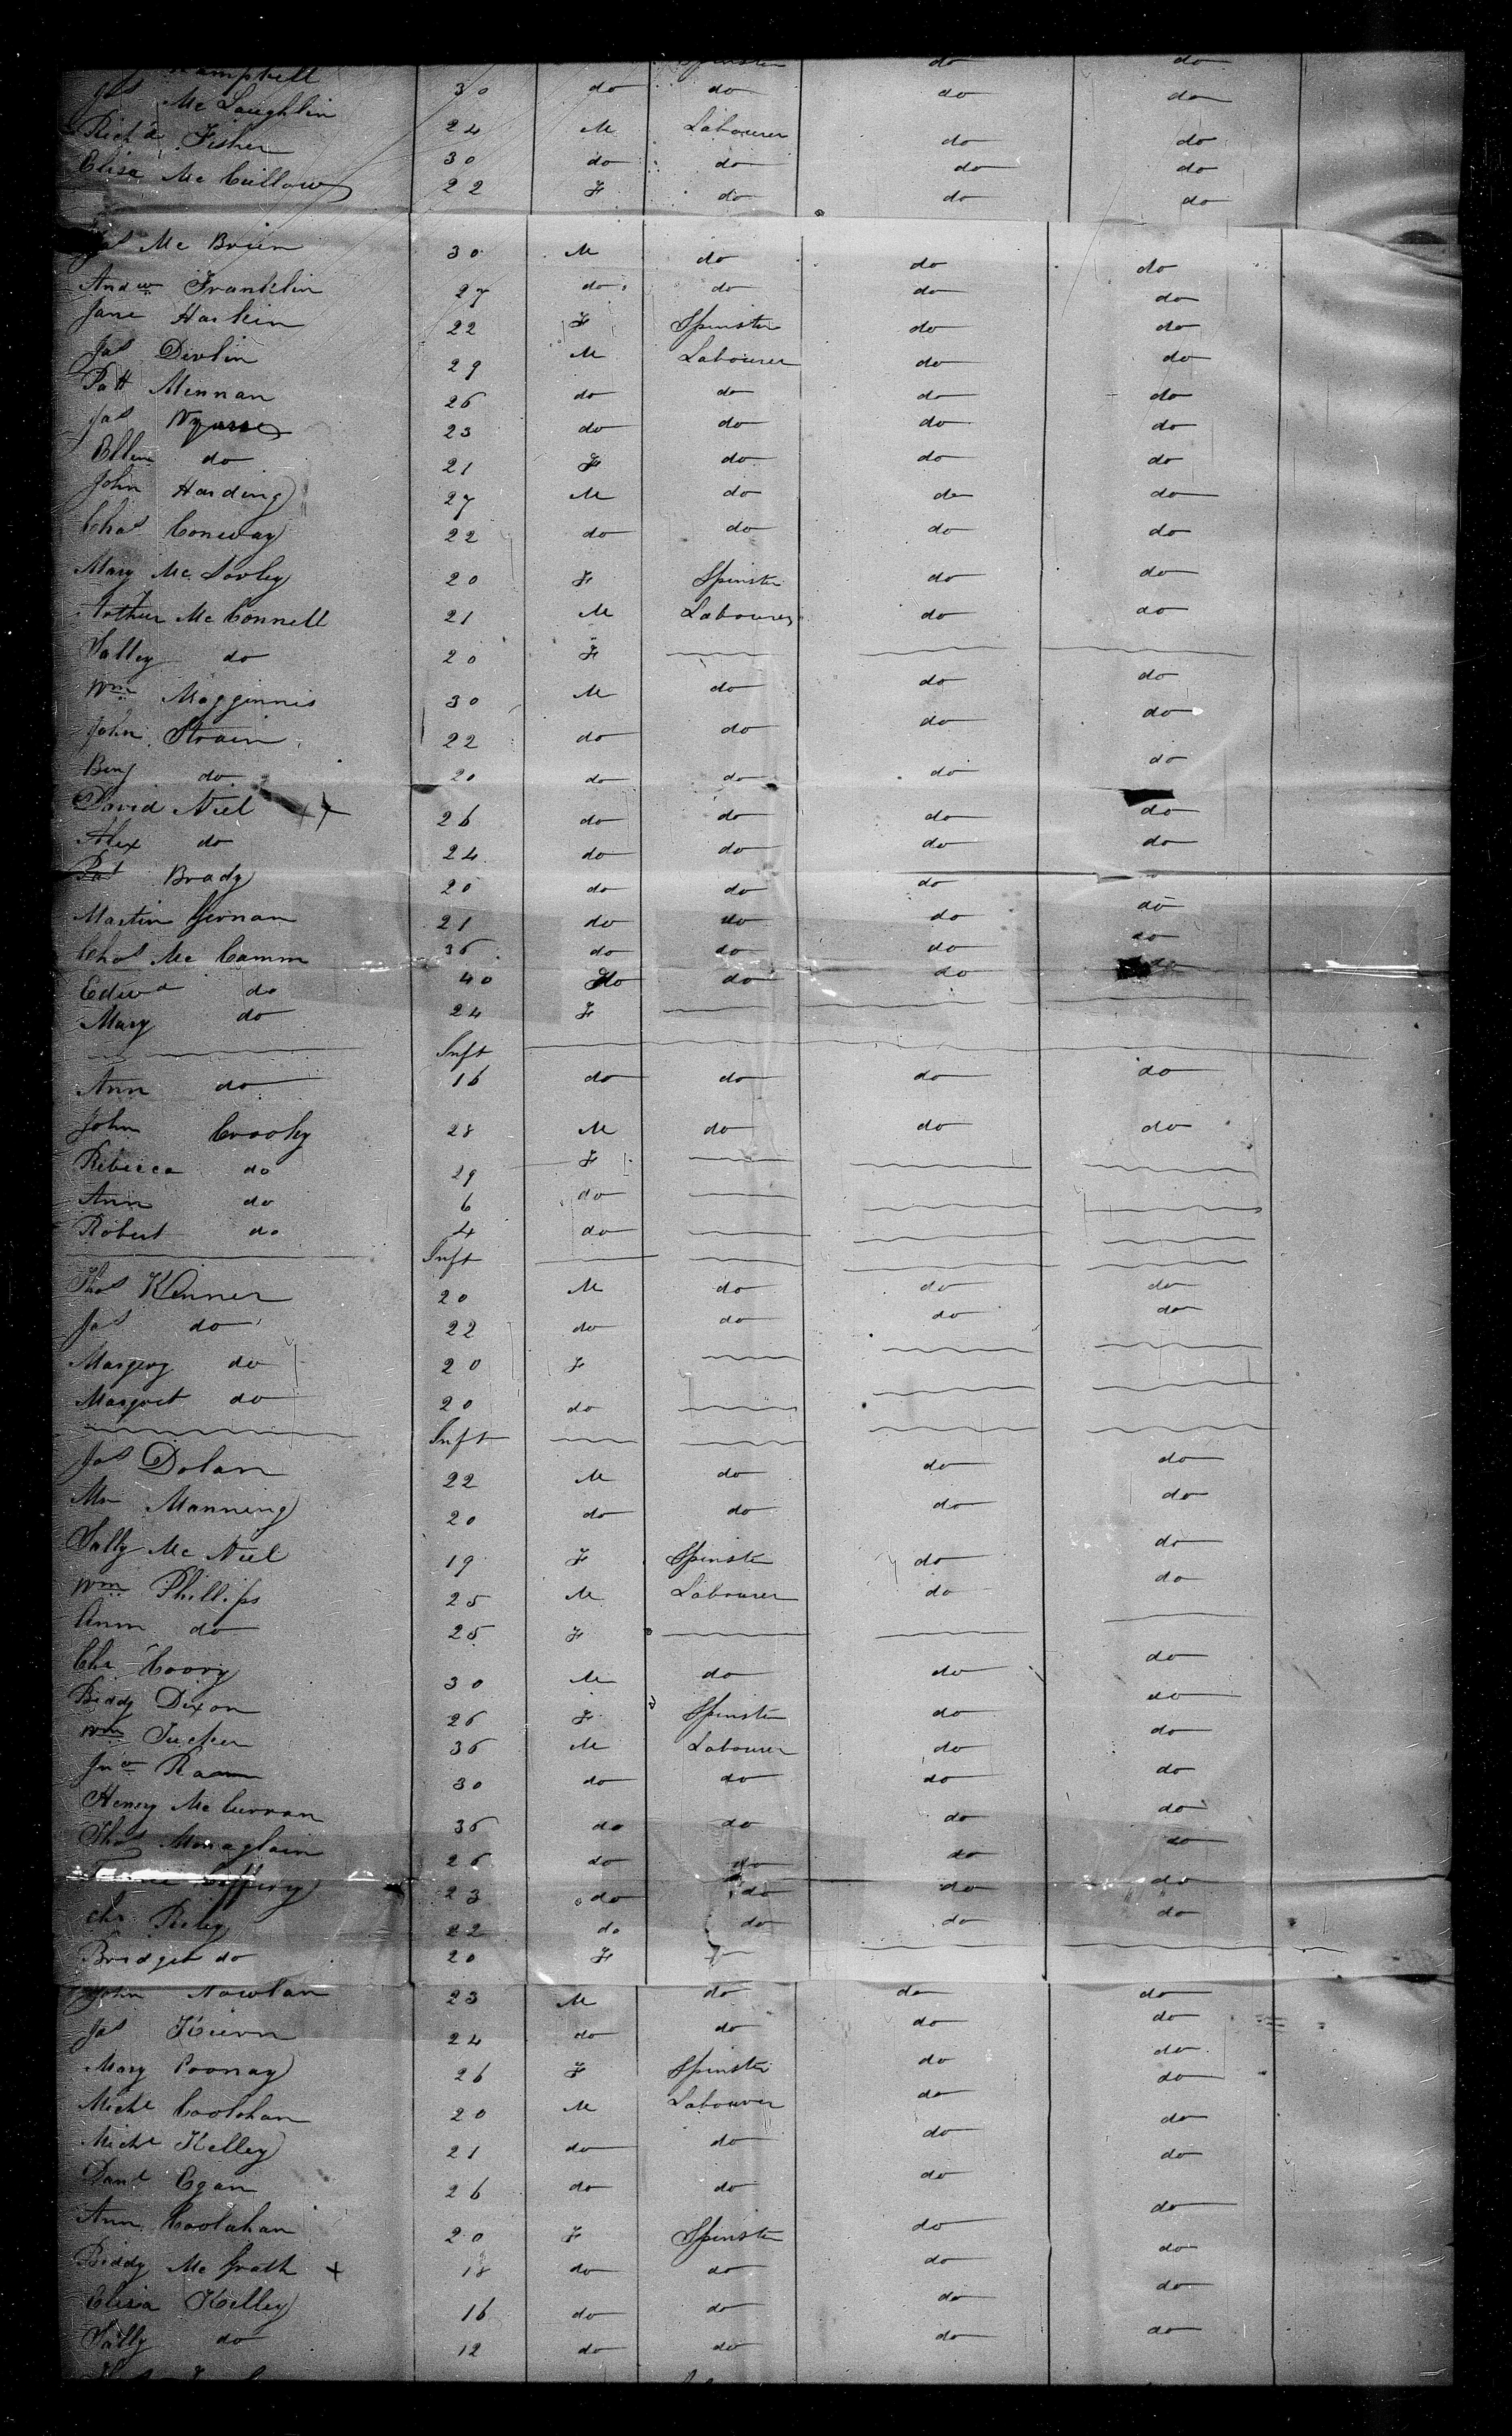 Campbell Spinster do do
Jas McLaughlin 30 do do do do
Richd Fisher 24 M Labourer do do
Elisa McCullow 30 do do do do
22 F do do do
Jas McBrien 30 M do do do
Andw Franklin 27 do do do do
Jane Harkin 22 F Spinster do do
Jas Divlin 29 M Labourer do do
Patt Mennan 26 do do do do
Jas 23 do do do do
Ellen do 21 F do do do
John Harding 27 M do do do
Chas Conway 22 do do do do
Mary McSorley 20 F Spinster do do
Arthur McConnell 21 M Labourer do do
Salley do 20 F
Wm Magginnis 30 M do do do
John Strain 22 do do do do
Benj do 20 do do do do
David Niel 26 do do do do
Alex do 24 do do do do
Pat Brady 20 do do do do
Martin Girnan 21 do do do do
Chas McCamm 36 do do do do
Edwd do 40 do do do do
Mary do 24 F
Inft
Ann do 16 do do do do
John Crooky 28 M do do do
Rebecca do 29 F
Ann do 6 do
Robert do 4 do
Inft
Thos Kenner 20 M do do do
Jas do 22 do do do do
Margery do 20 F
Margret do 20 do
Inft
Jas Dolan 22 M do do do
Mr Manning 20 do do do do
Sally McNiel 19 F Spinster do do
Wm Phillips 25 M Labourer do do
Ann do 25 F
Chr Corry 30 M do do do
Biddy Dixon 26 F Spinster do do
Wm Tucker 36 M Labourer do do
Jno 30 do do do do
Henry McCurran 36 do do do do
Thos Monaglain 26 do do do do
Caffery 23 do do do do
Chr Riley 22 do do do do
Bridget do 20 F
John Nowlan 23 M do do do
Jas Kievn 24 do do do do
Mary Coonay 26 F Spinster do do
Michl Coolahan 20 M Labourer do do
Michl Kelley 21 do do do do
Danl Egan 26 do do do do
Ann Coolahan 20 F Spinster do do
Biddy McGrath 18 do do do do
Elisa Kelley 16 do do do do
Sally do 12 do do do do